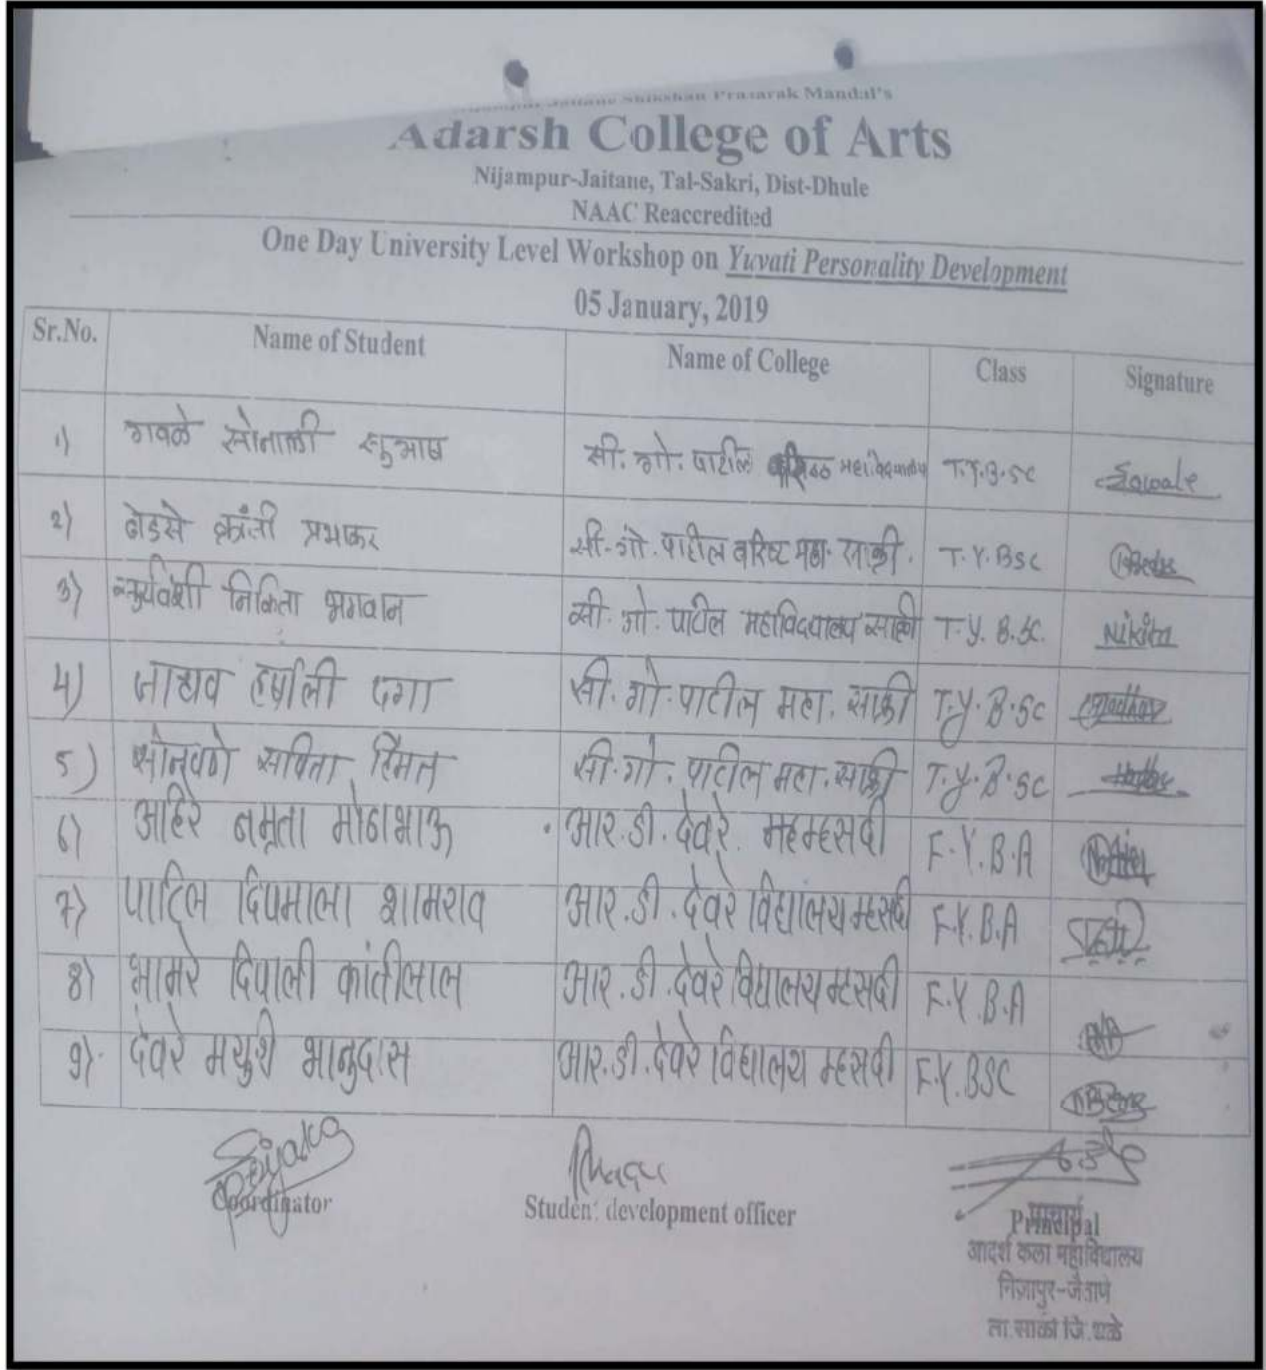 Jaitane Shikshan Prasarak Mandal's
Adarsh College of Arts
Nijampur-Jaitane, Tal-Sakri, Dist-Dhule
NAAC Reaccredited
One Day University Level Workshop on Yuvati Personality Development
05 January, 2019
Sr.No. Name of Student Name of College Class Signature
1) गवळे सोनाली सुभाष सी. गो. पाटील T.Y.B.SC Gawale
2) बोडसे क्रांती प्रभाकर सी. गो. पाटील वरिष्ट महा. साक्री. T.Y.BSC
3) सुर्यवंशी निकिता भगवान सी. गो. पाटील महाविदयालय साक्री T.Y.B.SC. Nikita
4) जाधव हर्षाली दगा सी. गो. पाटील महा. साक्री T.Y.B.SC
5) सोनवणे सविता हिंमत सी. गो. पाटील महा. साक्री T.Y.B.SC
6) आहिरे नम्रता मोठाभाऊ आर.डी.देवरे. F.Y.B.A
7) पाटिल दिपमाला शामराव आर.डी.देवरे विद्यालय म्हसदी F.Y.B.A
8) भामरे दिपाली कांतीलाल आर.डी.देवरे विद्यालय म्हसदी F.Y.B.A
9) देवरे मयुरी भानुदास आर.डी.देवरे विद्यालय म्हसदी F.Y.BSC
Coordinator Student development officer Principal
प्राचार्य
आदर्श कला महाविद्यालय
निजामपुर-जैताणे
ता.साक्री जि.धुळे